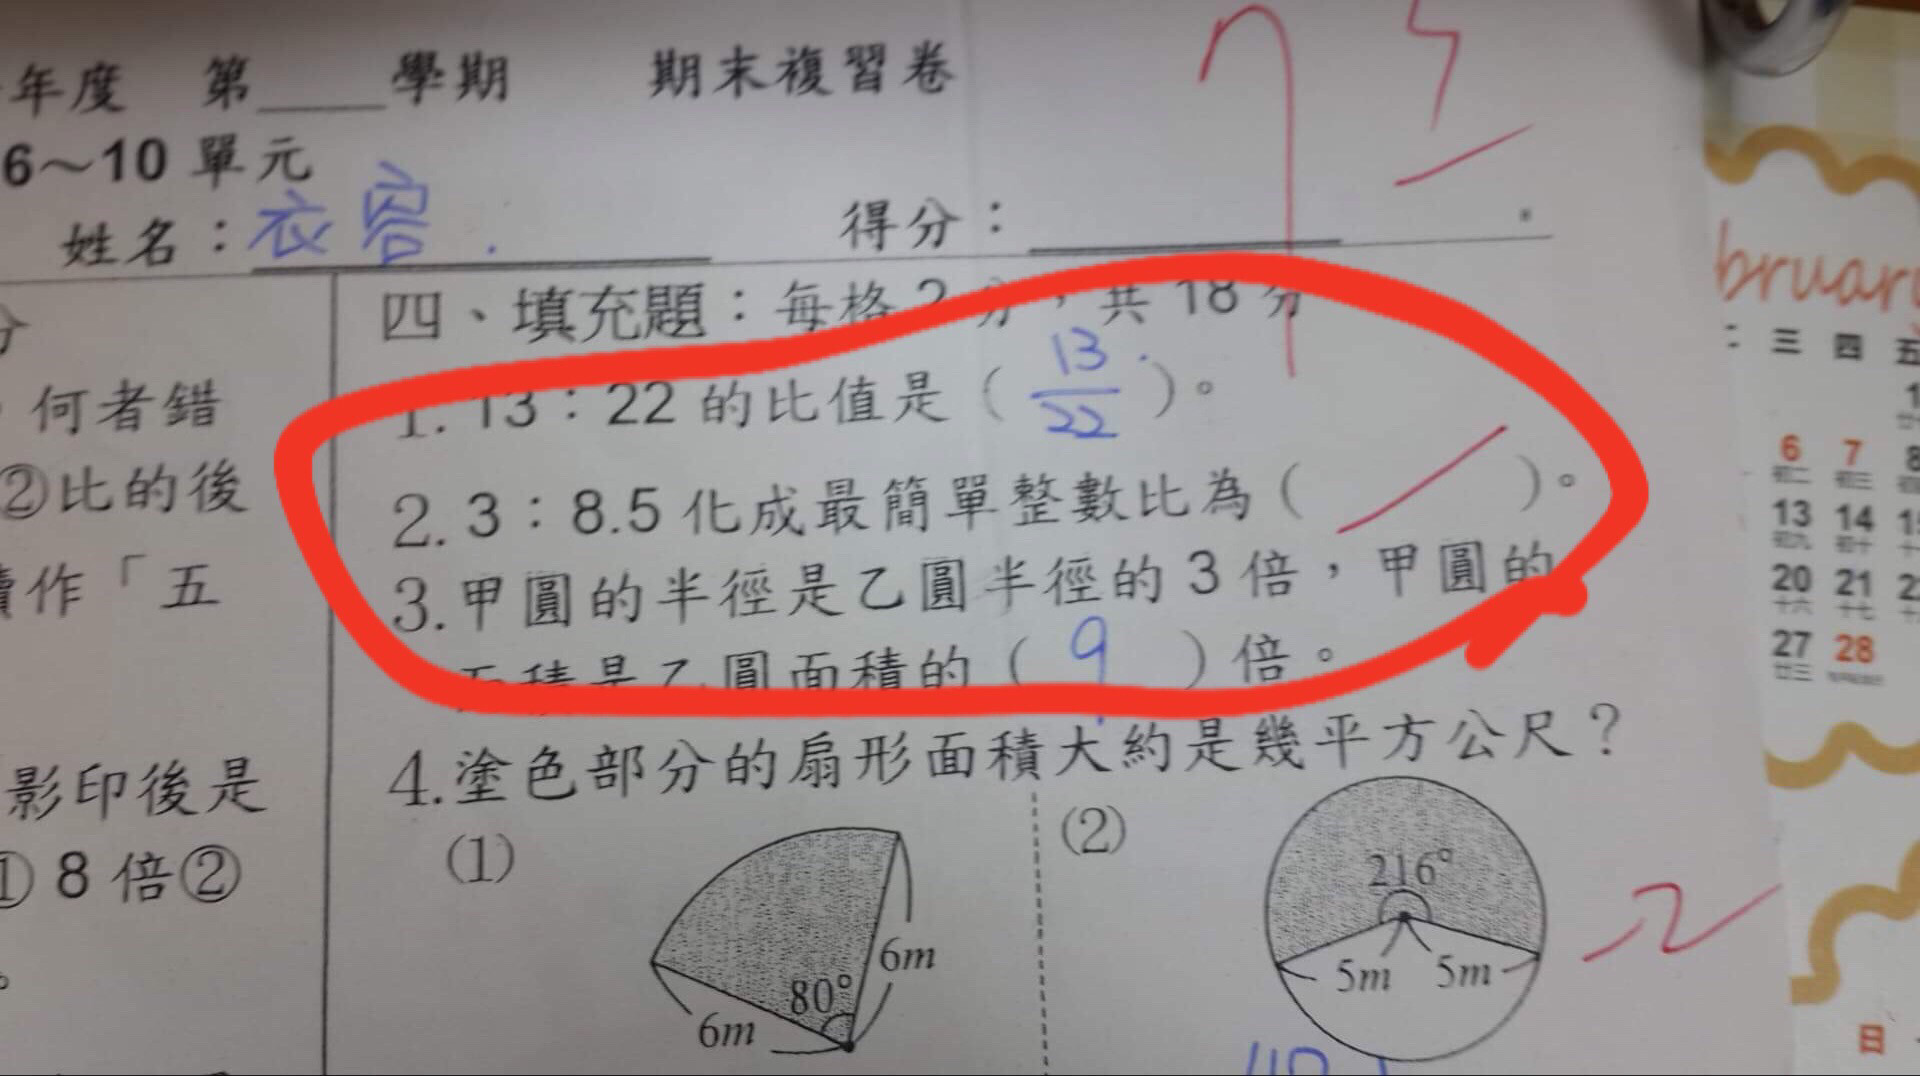 年度 第____學期 期末複習卷
75
6～10 單元
姓名：衣容.
得分：
分
何者錯
②比的後
作「五
影印後是
① 8 倍②
。
四、填充題：每格 2 分，共 18 分
1. 13：22 的比值是（ 13/22 ）。
2. 3：8.5 化成最簡單整數比為（ ）。
3. 甲圓的半徑是乙圓半徑的 3 倍，甲圓的
面積是乙圓面積的（ 9 ）倍。
4. 塗色部分的扇形面積大約是幾平方公尺？
(1)
80°
6m
6m
(2)
216°
5m
5m
bruary
三 四 五
6 7 8
初二 初三
13 14
初九 初十
20 21
十六 十七
27 28
廿三
日